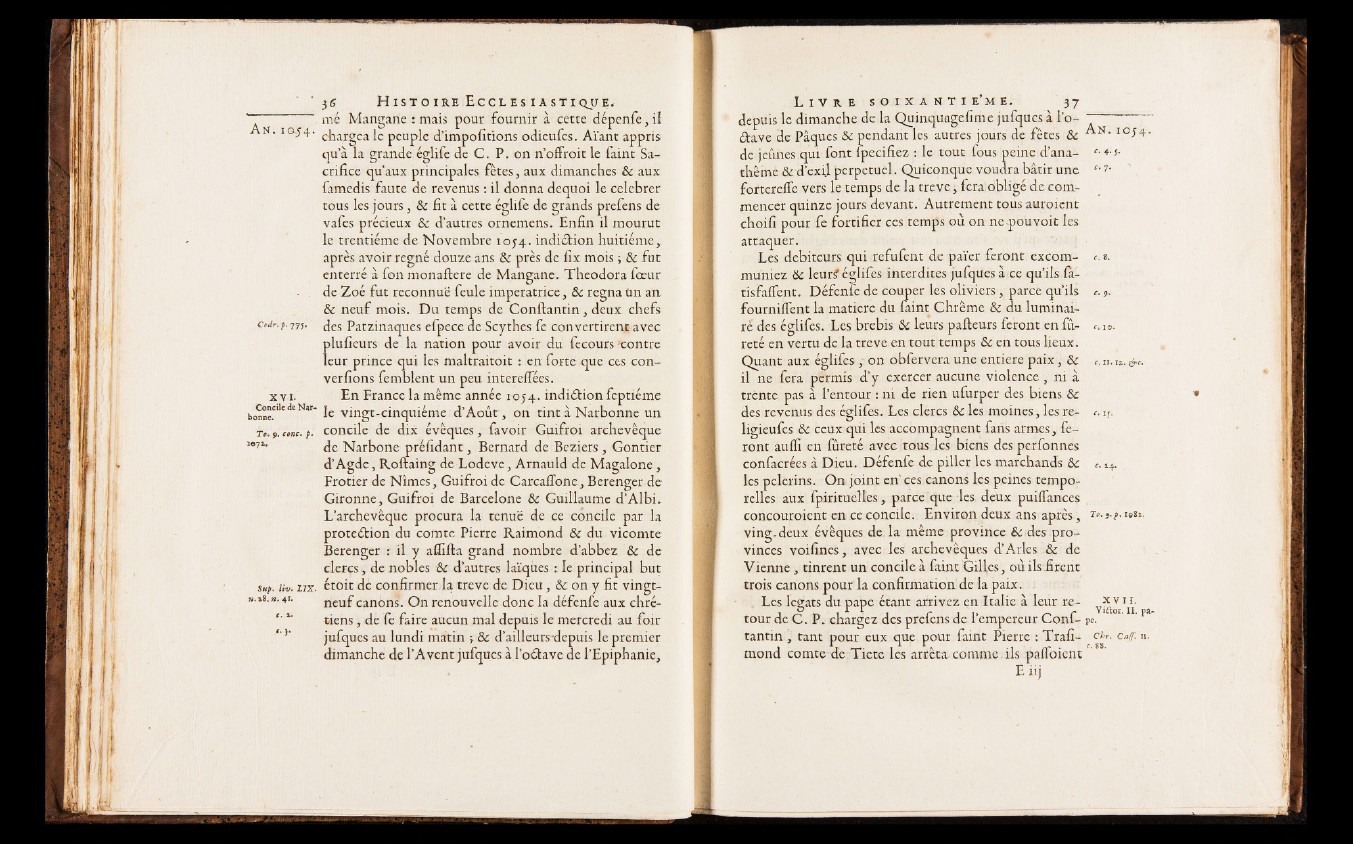 36 HISTOIRE ECCLESIASTIQUE.
AN. 1054.
mé Mangane : mais pour fournir à cette dépenſe, il
chargea le peuple d'impoſitions odieuſes. Aïant appris
qu'à la grande égliſe de C. P. on n'offroit le ſaint Sa-
crifice qu'aux principales fêtes, aux dimanches & aux
ſamedis faute de revenus : il donna dequoi le celebrer
tous les jours, & fit à cette égliſe de grands preſens de
vaſes précieux & d'autres ornemens. Enfin il mourut
le trentiéme de Novembre 1054. indiction huitiéme,
après avoir regné douze ans & près de ſix mois ; & fut
enterré à ſon monaſtere de Mangane. Theodora ſœur
de Zoé fut reconnuë ſeule imperatrice, & regna un an
& neuf mois. Du temps de Conſtantin, deux chefs
Cedr. p. 775.
des Patzinaques eſpece de Scythes ſe convertirent avec
pluſieurs de la nation pour avoir du ſecours contre
leur prince qui les maltraitoit : en ſorte que ces con-
verſions ſemblent un peu intereſſées.
XVI.
Concile de Nar-
bonne.
To. 9. conc. p.
1072.
En France la même année 1054. indiction ſeptiéme
le vingt-cinquiéme d'Août, on tint à Narbonne un
concile de dix évêques, ſavoir Guifroi archevêque
de Narbone préſidant, Bernard de Beziers, Gontier
d'Agde, Roſtaing de Lodeve, Arnauld de Magalone,
Frotier de Nimes, Guifroi de Carcaſſone, Berenger de
Gironne, Guifroi de Barcelone & Guillaume d'Albi.
L'archevêque procura la tenuë de ce concile par la
protection du comte Pierre Raimond & du vicomte
Berenger : il y aſſiſta grand nombre d'abbez & de
clercs, de nobles & d'autres laïques : le principal but
Sup. liv. LIX.
n. 28. n. 41.
étoit de confirmer la treve de Dieu, & on y fit vingt-
neuf canons. On renouvelle donc la défenſe aux chré-
c. 2.
tiens, de ſe faire aucun mal depuis le mercredi au ſoir
c. 3.
juſques au lundi matin ; & d'ailleurs depuis le premier
dimanche de l'Avent juſques à l'octave de l'Epiphanie,
LIVRE SOIXANTIE'ME. 37
AN. 1054.
depuis le dimanche de la Quinquageſime juſques à l'o-
ctave de Pâques & pendant les autres jours de fêtes &
de jeûnes qui ſont ſpecifiez : le tout ſous peine d'ana-
c. 4. 5.
thême & d'exil perpetuel. Quiconque voudra bâtir une
c. 7.
fortereſſe vers le temps de la treve, ſera obligé de com-
mencer quinze jours devant. Autrement tous auroient
choiſi pour ſe fortifier ces temps où on ne pouvoit les
attaquer.
Les debiteurs qui refuſent de païer ſeront excom-
c. 8.
muniez & leurs égliſes interdites juſques à ce qu'ils ſa-
tisfaſſent. Défenſe de couper les oliviers, parce qu'ils
c. 9.
fourniſſent la matiere du ſaint Chrême & du luminai-
re des égliſes. Les brebis & leurs paſteurs ſeront en ſû-
c. 10.
reté en vertu de la treve en tout temps & en tous lieux.
Quant aux égliſes, on obſervera une entiere paix, &
c. 11. 12. &c.
il ne ſera permis d'y exercer aucune violence, ni à
trente pas à l'entour : ni de rien uſurper des biens &
des revenus des égliſes. Les clercs & les moines, les re-
c. 15.
ligieuſes & ceux qui les accompagnent ſans armes, ſe-
ront auſſi en ſûreté avec tous les biens des perſonnes
conſacrées à Dieu. Défenſe de piller les marchands &
c. 24.
les pelerins. On joint en ces canons les peines tempo-
relles aux ſpirituelles, parce que les deux puiſſances
concouroient en ce concile. Environ deux ans après,
To. 9. p. 1082.
ving-deux évêques de la même province & des pro-
vinces voiſines, avec les archevêques d'Arles & de
Vienne, tinrent un concile à ſaint Gilles, où ils firent
trois canons pour la confirmation de la paix.
Les legats du pape étant arrivez en Italie à leur re-
XVII.
Victor. II. pa-
pe.
tour de C. P. chargez des preſens de l'empereur Conſ-
tantin, tant pour eux que pour ſaint Pierre : Traſi-
Chr. Caſſ. II.
c. 88.
mond comte de Tiete les arrêta comme ils paſſoient
E iij